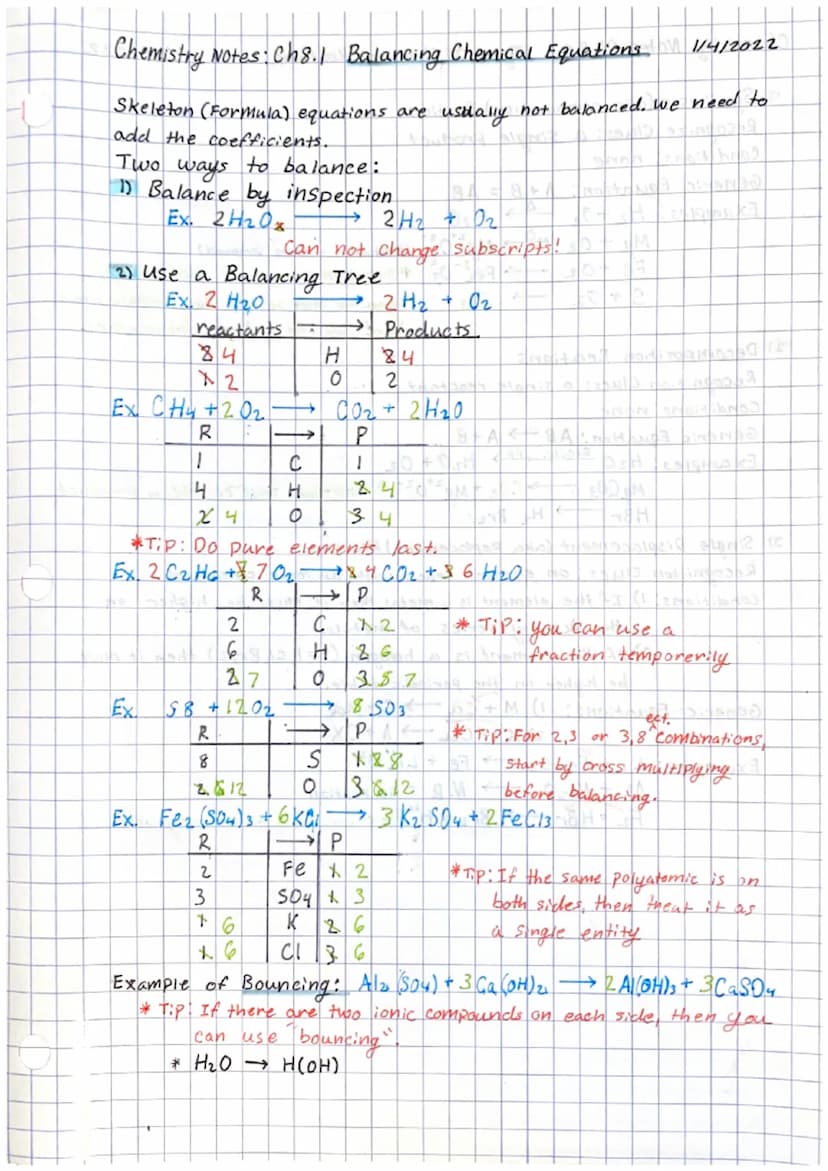 Chemistry Notes: Ch8.1 Balancing Chemical Equations 1/4/2022
Skeleton (Formula) equations are usually not balanced. we need to
add the coefficients.
Two ways to balance:
1) Balance by inspection
Ex. 2H2Ox → 2H2 + O2
Can not change subscripts!
2) Use a Balancing Tree
Ex. 2 H2O → 2H2 + O2
reactants → Products
2 4 H 2 4
1 2 O 2
Ex. CH4 + 2O2 → CO2 + 2H2O
R → P
1 C 1
4 H 2 4
2 4 O 3 4
*Tip: Do pure elements last.
Ex. 2C2H6 + 7O2 → 4CO2 + 3 6 H2O
R → P
2 C 1 2 * Tip: you can use a
6 H 2 6 fraction temporerily
2 7 O 3 5 7
Ex. S8 + 12O2 → 8SO3
R → P * Tip: For 2,3 or 3,8 ect. combinations,
8 S 1 2 8 start by cross multiplying
2 6 12 O 3 6 12 before balancing.
Ex. Fe2(SO4)3 + 6KCl → 3K2SO4 + 2FeCl3
R → P
2 Fe 1 2 *Tip: If the same polyatomic is on
3 SO4 1 3 both sides, then treat it as
1 6 K 2 6 a single entity
1 6 Cl 3 6
Example of Bouncing: Al2(SO4) + 3Ca(OH)2 → 2Al(OH)3 + 3CaSO4
* Tip: If there are two ionic compounds on each side, then you
can use "bouncing".
* H2O → H(OH)